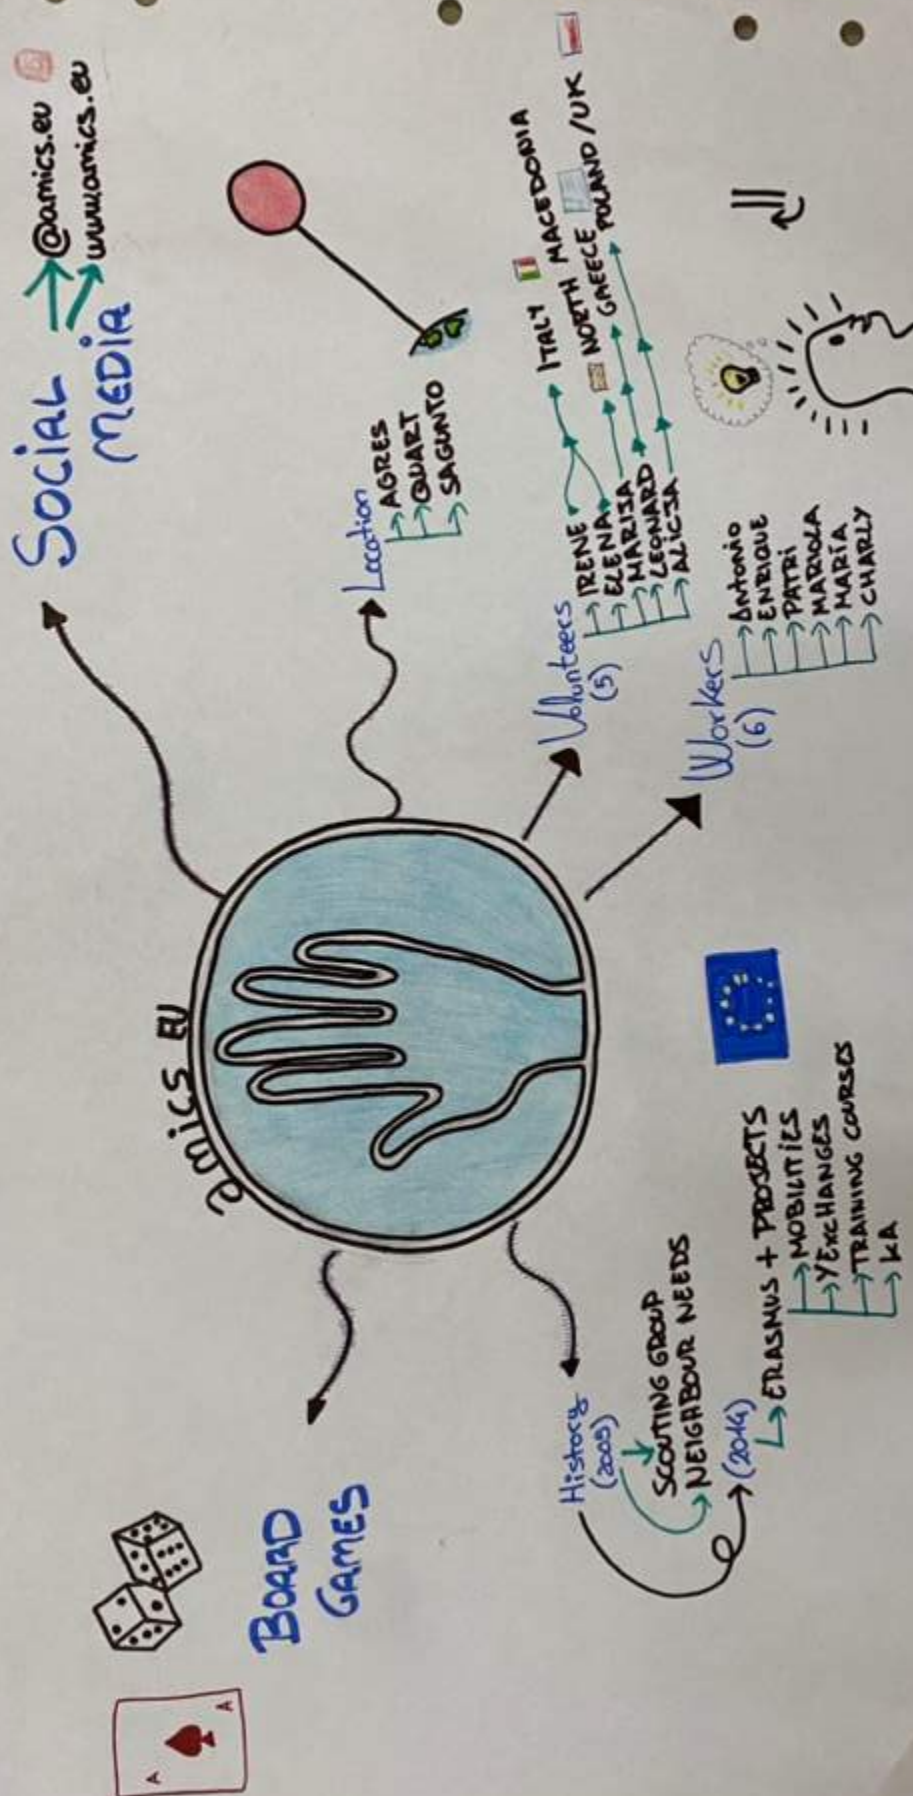 amics EU
SOCIAL
MEDIA
@amics.eu
www.amics.eu
Location
AGRES
QUART
SAGUNTO
Volunteers
(5)
IRENE
ELENA
MARIJA
LEONARD
ALICJA
ITALY
NORTH MACEDONIA
GREECE
POLAND/UK
Workers
(6)
Antonio
ENRIQUE
PATRI
MARIOLA
MARÍA
CHARLY
BOARD
GAMES
A
A
History
(2005)
SCOUTING GROUP
NEIGHBOUR NEEDS
(2014)
ERASMUS + PROJECTS
MOBILITIES
YEXCHANGES
TRAINING COURSES
KA